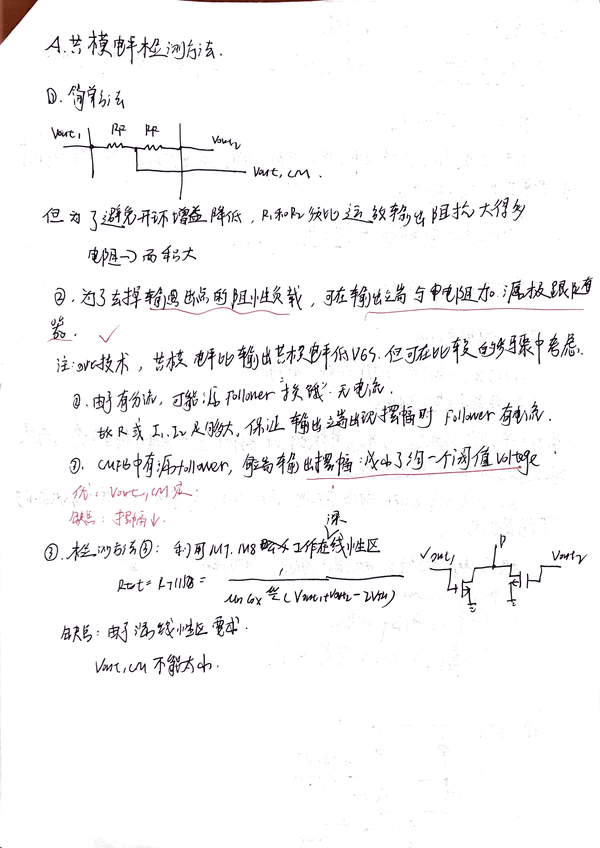 A. 共模电平检测方法.
①. 简单方法
Vout1 RF RF Vout2
Vout,CM.
但为了避免开环增益降低, R1和R2须比运放输出阻抗大得多
电阻→面积大
②. 为了去掉输出点的阻性负载, 可在输出端与电阻加源极跟随
器. ✓
注: 技术, 共模电平比输出共模电平低VGS. 但可在比较的步骤中考虑.
②. 由于有分流, 可能源Follower "挨饿" 无电流.
故R或I1.I2足够大, 保证输出端出现摆幅时 Follower有电流.
③. CMFB中有源follower, 每端输出摆幅减小了约一个阈值Voltage
优: Vout,CM定
缺点: 摆幅↓.
深
③. 检测方法③: 利用M7.M8 工作在线性区
Rtot = R7||R8 = 1 / μnCox W/L (Vout1+Vout2-2Vth)
Vout1 P Vout2
缺点: 由于深线性区要求.
Vout,CM不能太小.